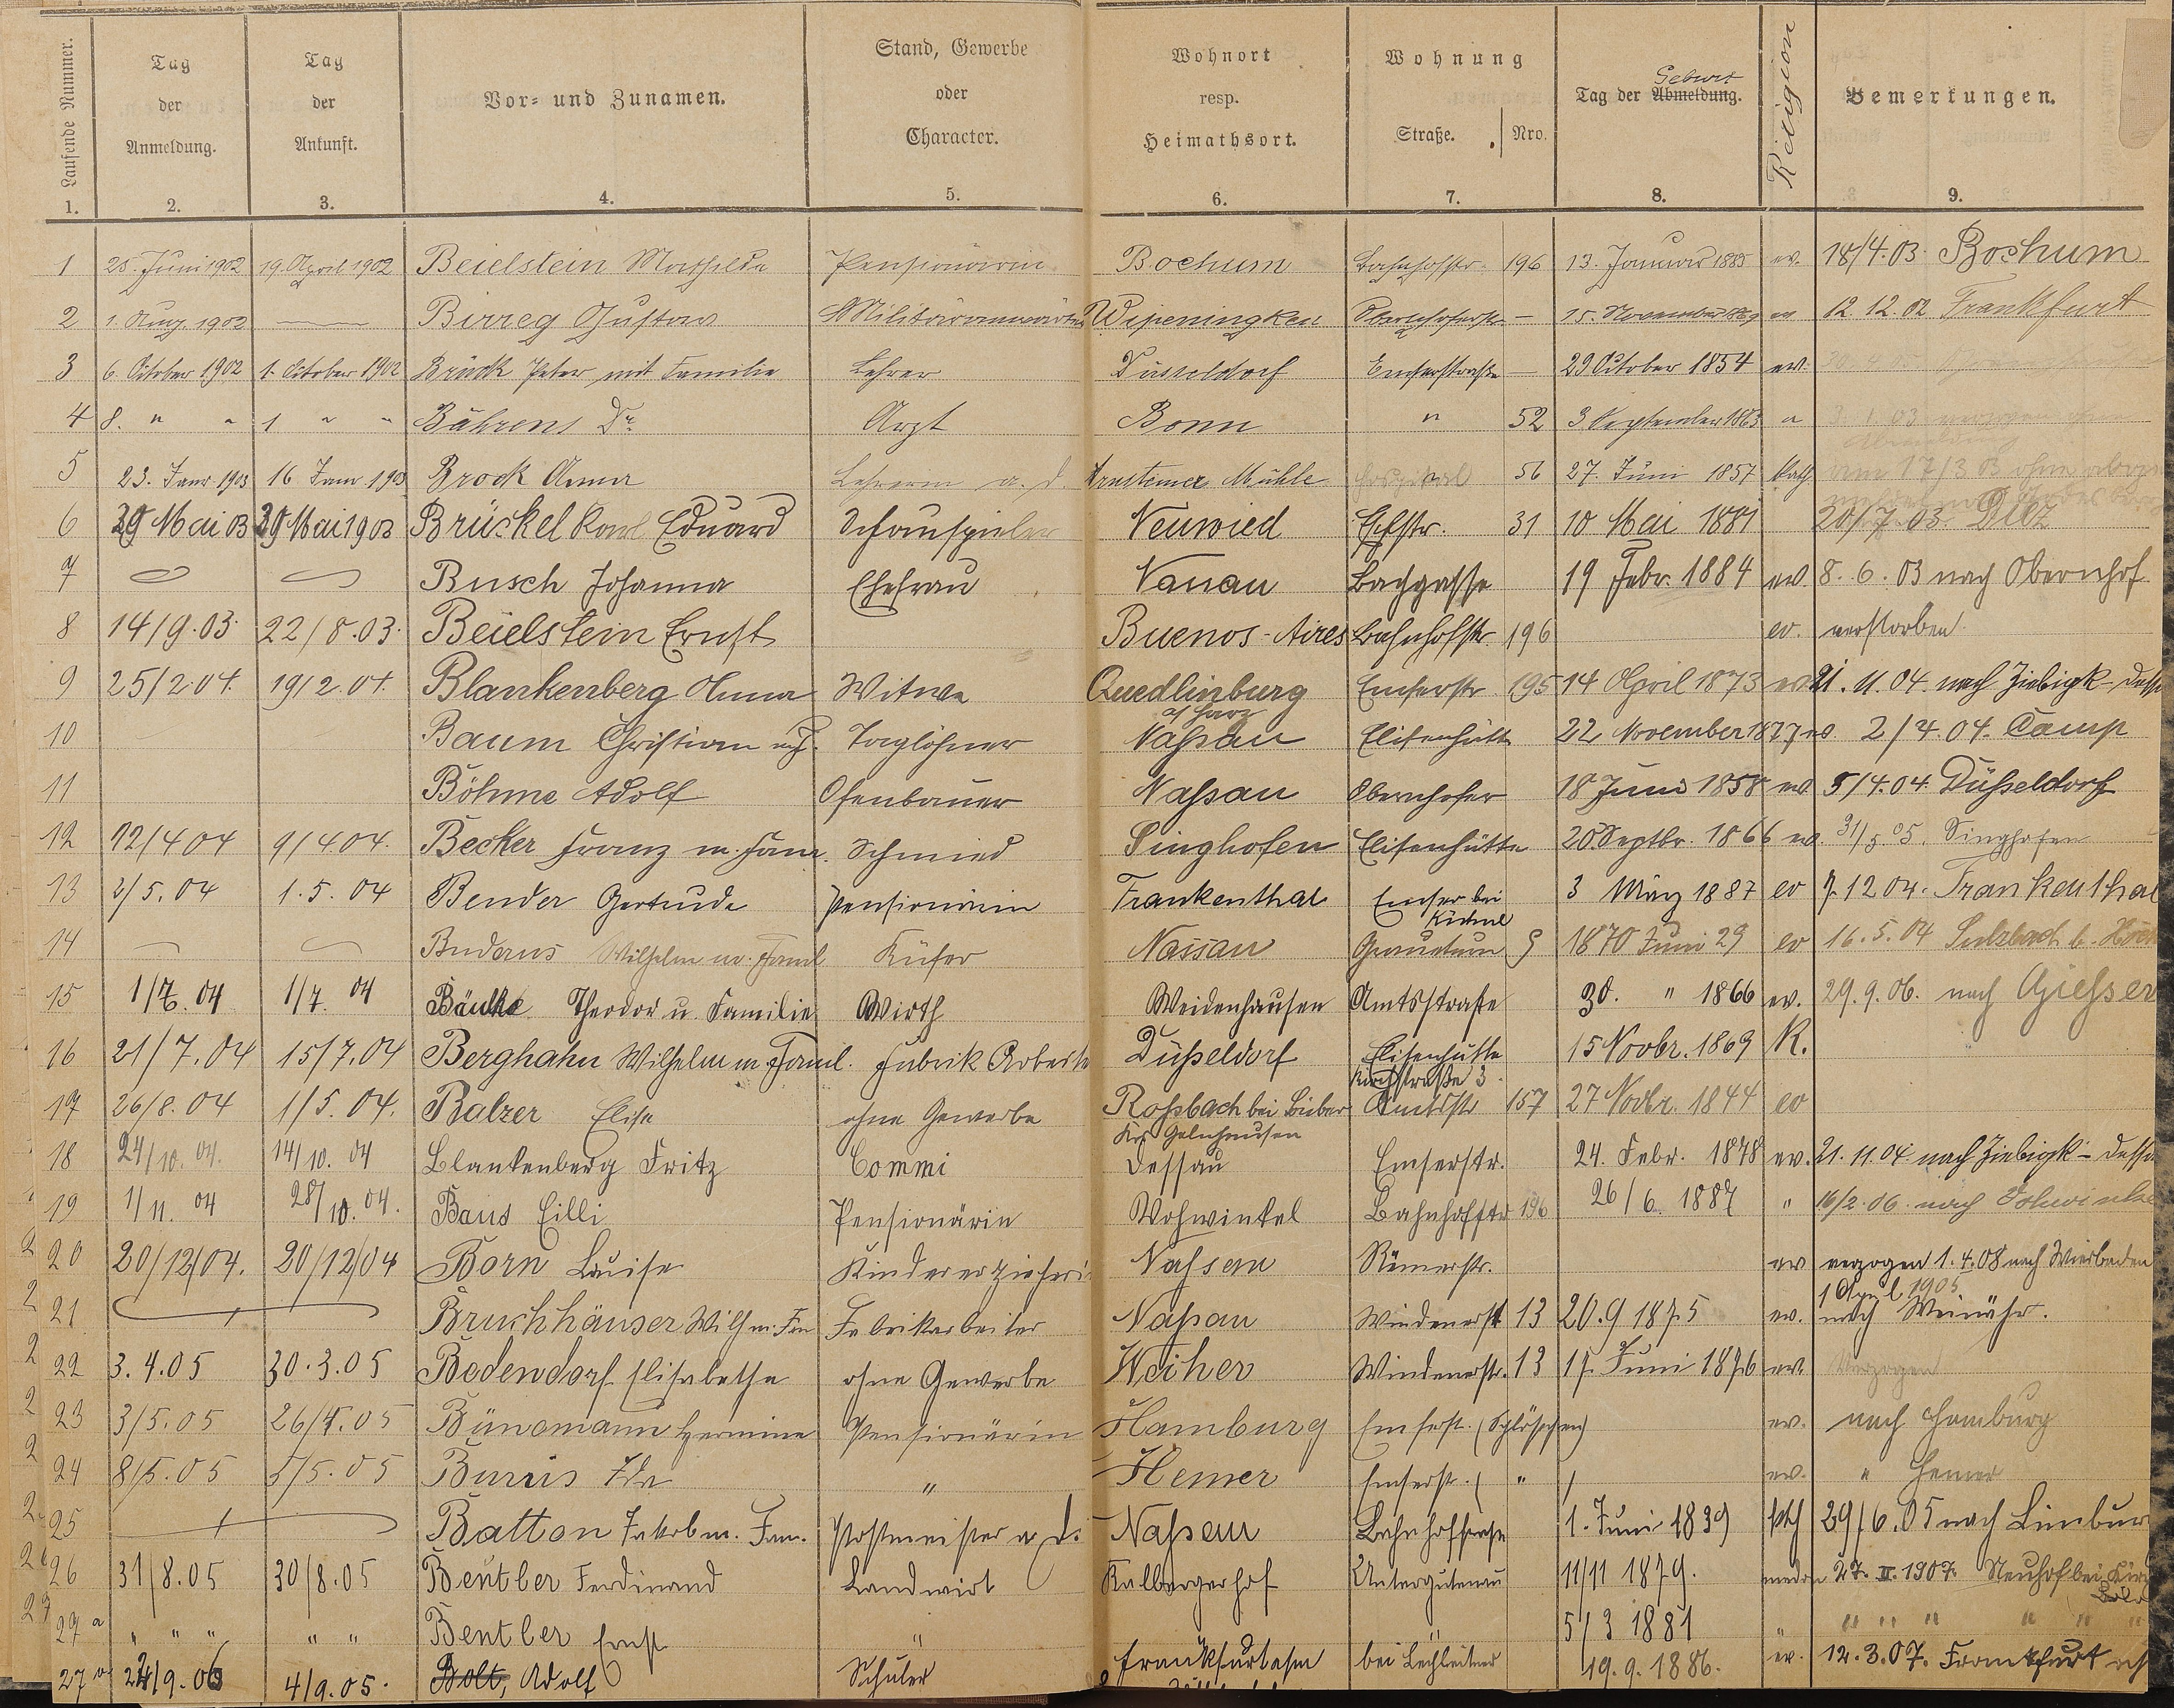 Laufende Nummer. Tag der Anmeldung. Tag der Ankunft. Vor- und Zunamen. Stand, Gewerbe oder Character. Wohnort resp. Heimathsort. Wohnung Straße. Nro. Tag der Abmeldung. Geburt Religion Bemerkungen.
1. 2. 3. 4. 5. 6. 7. 8. 9.
1 25. Juni 1902 19. April 1902 Beielstein Mathilde Pensionärin Bochum Bahnhofstr. 196 13. Januar 1885 ev. 18/4.03. Bochum
2 1. Aug. 1902 — Birreg Gustav Militäranwärter Wipeningken Obernhoferstr. — 15. November ev 12.12.02 Frankfurt
3 6. October 1902 1. October 1902 Brück Peter mit Familie Lehrer Düsseldorf Emserstraße — 29 October 1854 ev.
4 8. " " 1 " " Bährens Dr. Arzt Bonn " 52 3 September 1863 " 3.1.03
5 23. Janr 1903 16 Janr 1903 Brock Anna Lehrerin a. d. Arnsteiner Mühle Hospital 56 27. Juni 1857 kath. am 17/3 03 ohne
6 29 Mai 03 29 Mai 1903 Brückel Karl Eduard Schauspieler Neuwied Eschstr. 31 10 Mai 1881 20/7.03. Diez
7 Busch Johanna Ehefrau Nassau Bachgasse 19 Febr. 1884 ev. 8.6.03 nach Obernhof
8 14/9.03. 22/8.03. Beielstein Ernst Buenos-Aires Bahnhofstr. 196 ev. verstorben.
9 25/2.04. 19/2.04. Blankenberg Anna Witwe Quedlinburg a/Harz Emserstr. 195 14 April 1873 ev. 21.11.04. nach Ziebigk-Dessa
10 Baum Christian Taglöhner Nassau Elisenhütte 22 November 1877 ev. 2/4.04. Camp
11 Böhme Adolf Ofenbauer Nassau Obernhofer 18 Juni 1858 ev. 5/4.04. Düsseldorf
12 12/4 04 9/4 04. Becker Franz m. Fam. Schmied Singhofen Elisenhütte 20 Septbr. 1866 ev. 31/5.05. Singhofen
13 2/5.04 1.5.04 Bender Gertrude Pensionärin Frankenthal Emser bei 3 März 1887 ev 7.12 04. Frankenthal
14 Buderus Wilhelm m. Famil Küfer Nassau Grauturm 9 1870 Juni 29 ev 16.5.04 Sulzbach b. Höch
15 1/7.04 1/7.04 Bäulke Theodor u. Familie Wirth Weidenhausen Amtsstraße 30. " 1866 ev. 29.9.06. nach Giessen
16 21/7.04 15/7.04 Berghahn Wilhelm m. Famil. Fabrik Arbeite Düsseldorf Elisenhütte 15 Novbr. 1869 K.
17 26/8.04 1/5.04. Balzer Elise ohne Gewerbe Rossbach bei Bieber Krs Gelnhausen Kirchstraße 3. Amtsstr 157 27 Novbr. 1844 ev
18 24/10.04. 14/10.04 Blankenberg Fritz Commi Dessau Emserstr. 24. Febr. 1878 ev. 21.11.04 nach Ziebigk-Dessa
19 1/11.04 28/10.04. Baus Cilli Pensionärin Vohwinkel Bahnhofstr 196 26/6.1887 " 16/2.06. nach Vohwinke
20 20/12/04. 20/12/04 Born Luise Kindererzieheri Nassau Römerstr. ev verzogen 1.4.08 nach Wiesbaden
21 Bruchhäuser Wilh m. Fam Fabrikarbeiter Nassau Windenerst 13 20.9 1875 ev. 1 April 1905 nach Weinähr.
22 3.4.05 30.3.05 Bodendorf Elisabethe ohne Gewerbe Weiher Windenerstr. 13 17. Juni 1876 ev. Verzogen
23 3/5.05 26/4.05 Bünemann Hermine Pensionärin Hamburg Emserst. (Schlösschen) ev. nach Hamburg
24 8/5.05 5/5.05 Burris Ida " Hemer Emserst. ( " ) ev. " Hemer
25 Batton Jakob m. Fam. Postmeister a. d. Nassau Bahnhofstrasse 1. Juni 1839 kth 29/6.05 nach Limbur
26 31/8.05 30/8.05 Bentler Ferdinand Landwirt Kalbergerhof Untergutenau 11/11 1879. 27.II.1907. Neuhof bei
27a " " " " " Bentler Ernst " 5/3 1881 " " " " " " "
27 24/9.06 4/9.05. Bolt, Adolf Schüler Frankfurt a/m bei Lechleitner 19.9.1886. ev. 12.3.07. Frankfurt